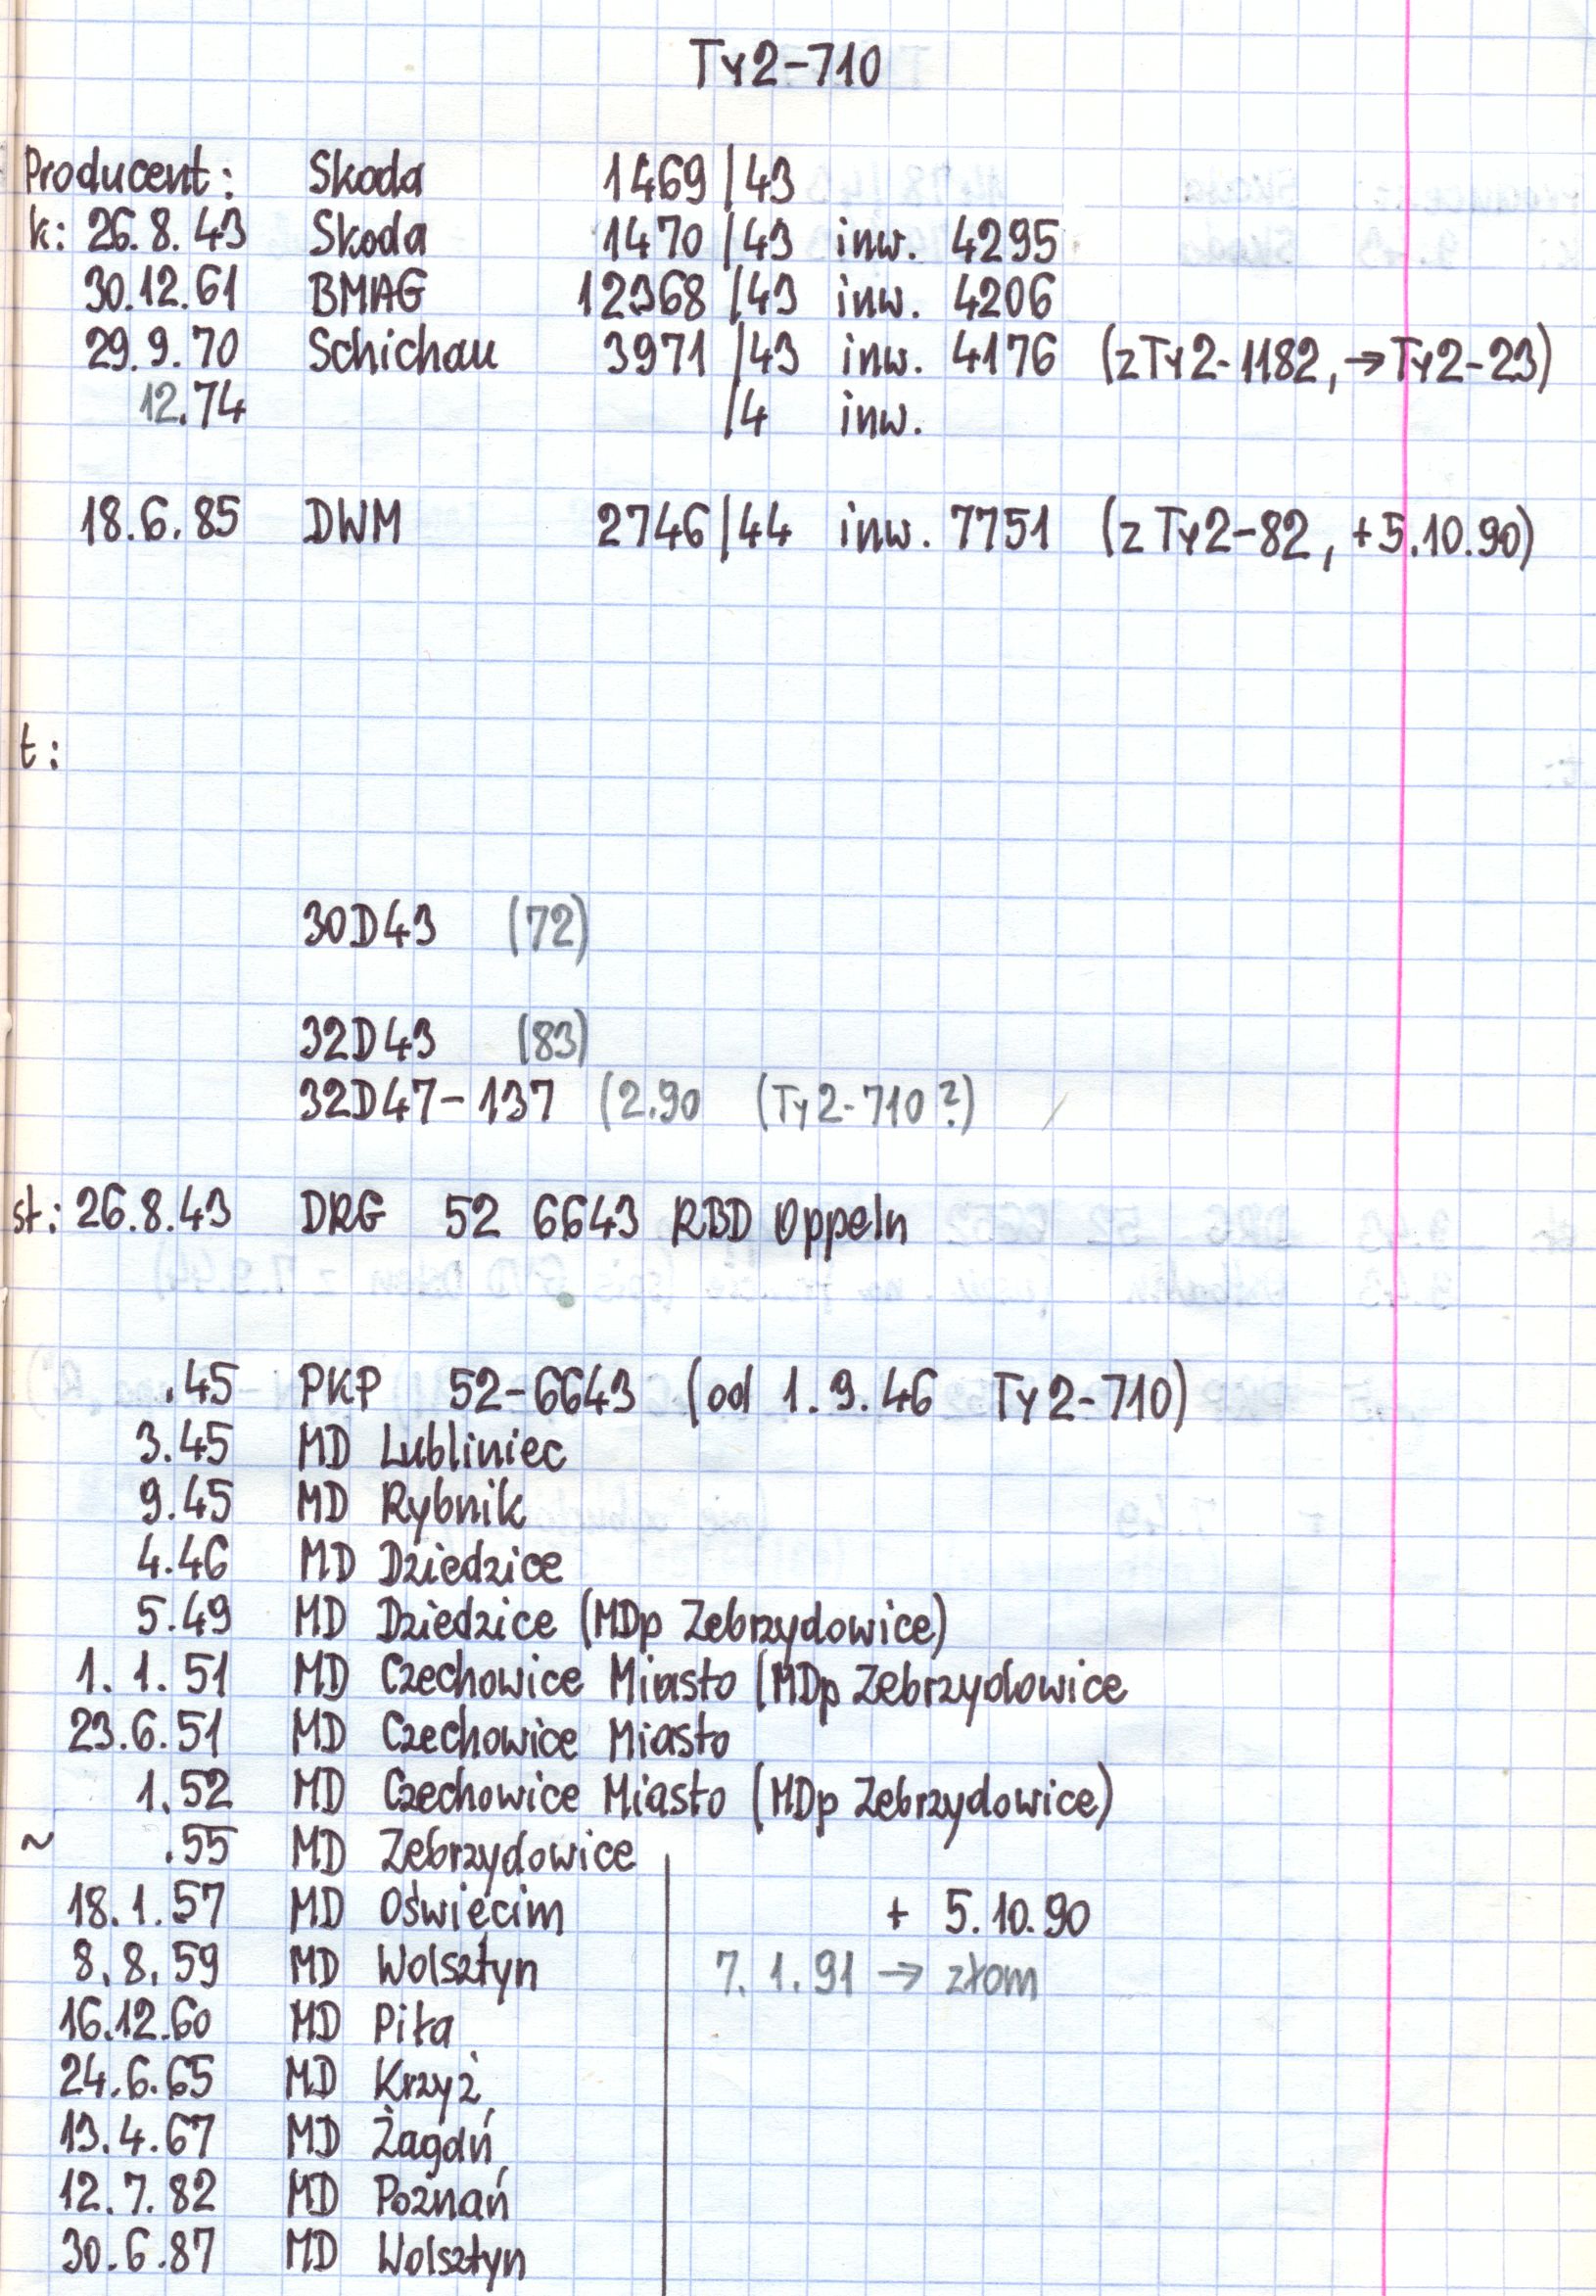 Ty2-710
Producent: Skoda 1469/43
k: 26.8.43 Skoda 1470/43 inw. 4295
30.12.61 BMAG 12368/43 inw. 4206
29.9.70 Schichau 3971/43 inw. 4176 (z Ty2-1182, → Ty2-23)
12.74 /4 inw.
18.6.85 DWM 2746/44 inw. 7751 (z Ty2-82, +5.10.90)
t:
30D43 (72)
32D43 (83)
32D47-137 (2.90 (Ty2-710?)
st: 26.8.43 DRG 52 6643 RBD Oppeln
.45 PKP 52-6643 (od 1.9.46 Ty2-710)
3.45 MD Lubliniec
9.45 MD Rybnik
4.46 MD Dziedzice
5.49 MD Dziedzice (MDp Zebrzydowice)
1.1.51 MD Czechowice Miasto (MDp Zebrzydowice
23.6.51 MD Czechowice Miasto
1.52 MD Czechowice Miasto (MDp Zebrzydowice)
~ .55 MD Zebrzydowice
18.1.57 MD Oświęcim + 5.10.90
8.8.59 MD Wolsztyn 7.1.91 → złom
16.12.60 MD Piła
24.6.65 MD Krzyż
13.4.67 MD Żagań
12.7.82 MD Poznań
30.6.87 MD Wolsztyn